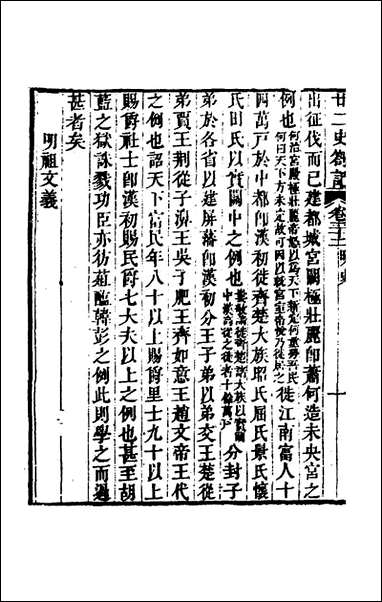 廿二史劄記 卷三十二 明史 十
出征伐而已建都城宮闕極壯麗即蕭何造未央宮之
例也何治宮殿極壯麗帝怒以為天下新定何重勞吾民何曰天下方未定故可因以就宮室帝後乃徙居之徙江南富人十
四萬戶於中都即漢初徙齊楚大族昭氏屈氏景氏懷
氏田氏以實關中之例也婁敬請徙齊楚諸大族以實關中漢高從之徙者十餘萬戶分封子
弟於各省以建屏藩即漢初分王子弟以弟交王楚從
弟賈王荊從子濞王吳子肥王齊如意王趙文帝王代
之例也詔天下富民年八十以上賜爵里士九十以上
賜爵社士即漢初賜民爵七大夫以上之例也甚至胡
藍之獄誅戮功臣亦彷菹醢韓彭之例此則學之而過
甚者矣
明祖文義